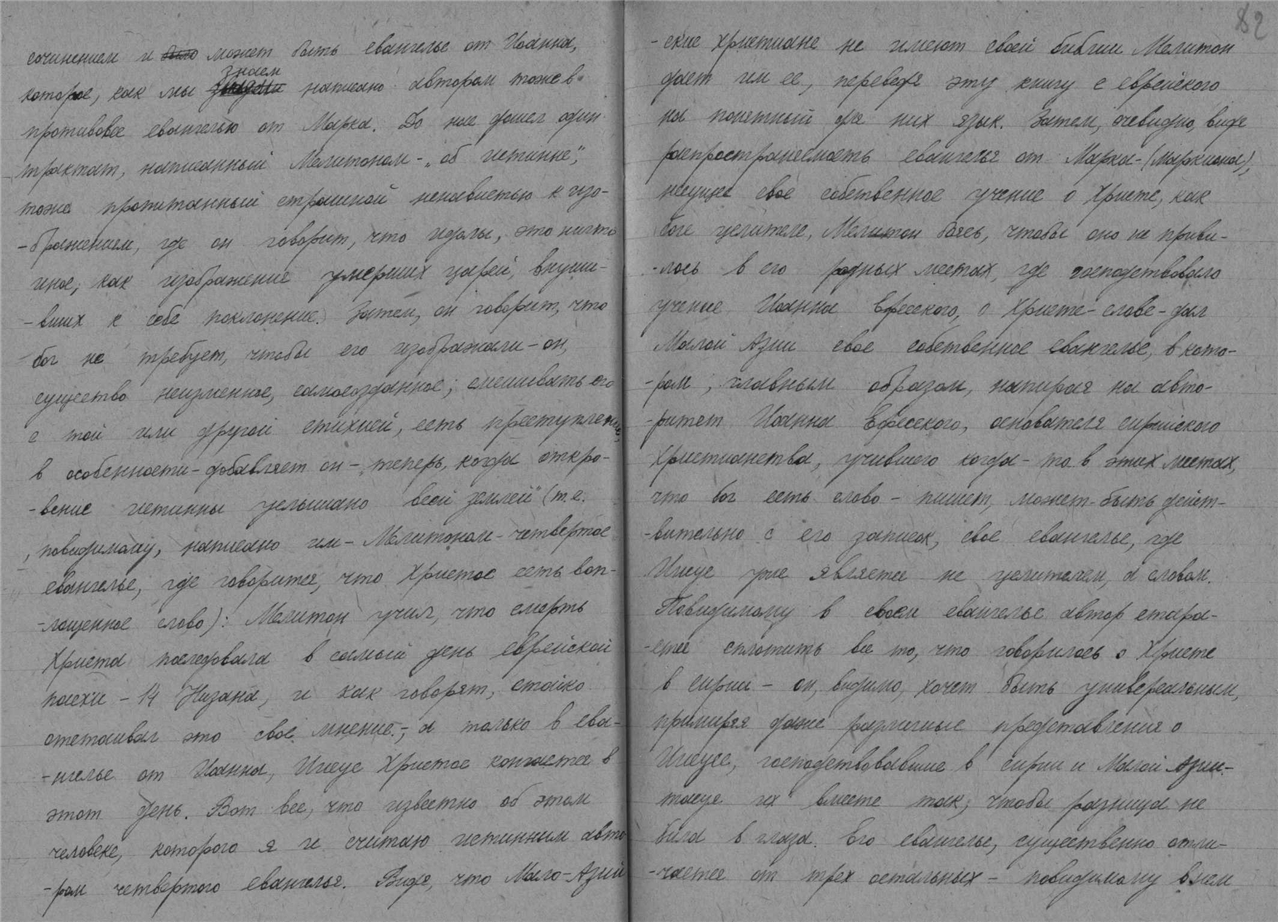 сочинением и может быть евангелье от Иоанна,
знаем
которое, как мы написано автором тоже в
противовес евангелью от Марка. До нас дошел один
трактат, написанный Мелитоном - „об истинне",
тоже пропитанный страшной ненавистью к изо-
-бражениям, где он говорит, что идолы, это ничто
иное, как изображение умерших царей, внуши-
-вших к себе поклонение. Затем, он говорит, что
бог не требует, чтобы его изображали - он,
существо неизменное, самосозданное; смешивать его
с той или другой стихией, есть преступление,
в особенности - добавляет он - теперь, когда откро-
-вение истинны услышано всей землей" (т.е.
, повидимому, написано им - Мелитоном - четвертое
евангелье, где говорится, что Христос есть воп-
-лощенное слово): Мелитон учил, что смерть
Христа последовала в самый день еврейской
пасхи - 14 Низана, и как говорят, стойко
отстаивал это своё мнение, - а только в ева-
-нгелье от Иоанна, Иисус Христос кончается в
этот день. Вот все, что известно об этом
человеке, которого я и считаю истинным авто-
-ром четвертого евангелья. Видя, что Мало-Азий
82
-ские христиане не имеют своей библии Мелитон
дает им ее, переведя эту книгу с еврейского
на понятный для них язык. Затем, очевидно, видя
распространяемость евангелья от Марка - (Маркиона),
несущее свое собственное учение о Христе, как
боге целителе, Мелитон боясь, чтобы оно не приви-
-лось в его родных местах, где господствовало
учение Иоанна Ефесского, о Христе - слове - дал
Малой Азии свое собственное евангелье, в кото-
-ром, главным образом, напирая на авто-
-ритет Иоанна Ефесского, основателя сирийского
Христианства, учившего когда-то в этих местах,
что бог есть слово - пишет, может-быть дейст-
-вительно с его записок, свое евангелье, где
Иисус уже является не целителем, а словом.
Повидимому в своем евангелье автор стара-
-ется сплотить все то, что говорилось о Христе
в Сирии - он, видимо, хочет быть универсальным,
примиряя даже различные представления о
Иисусе, господствовавшие в Сирии и Малой Азии -
их вместе так, чтобы разница не
била в глаза. Его евангелье, существенно отли-
-чается от трех остальных - повидимому в нем